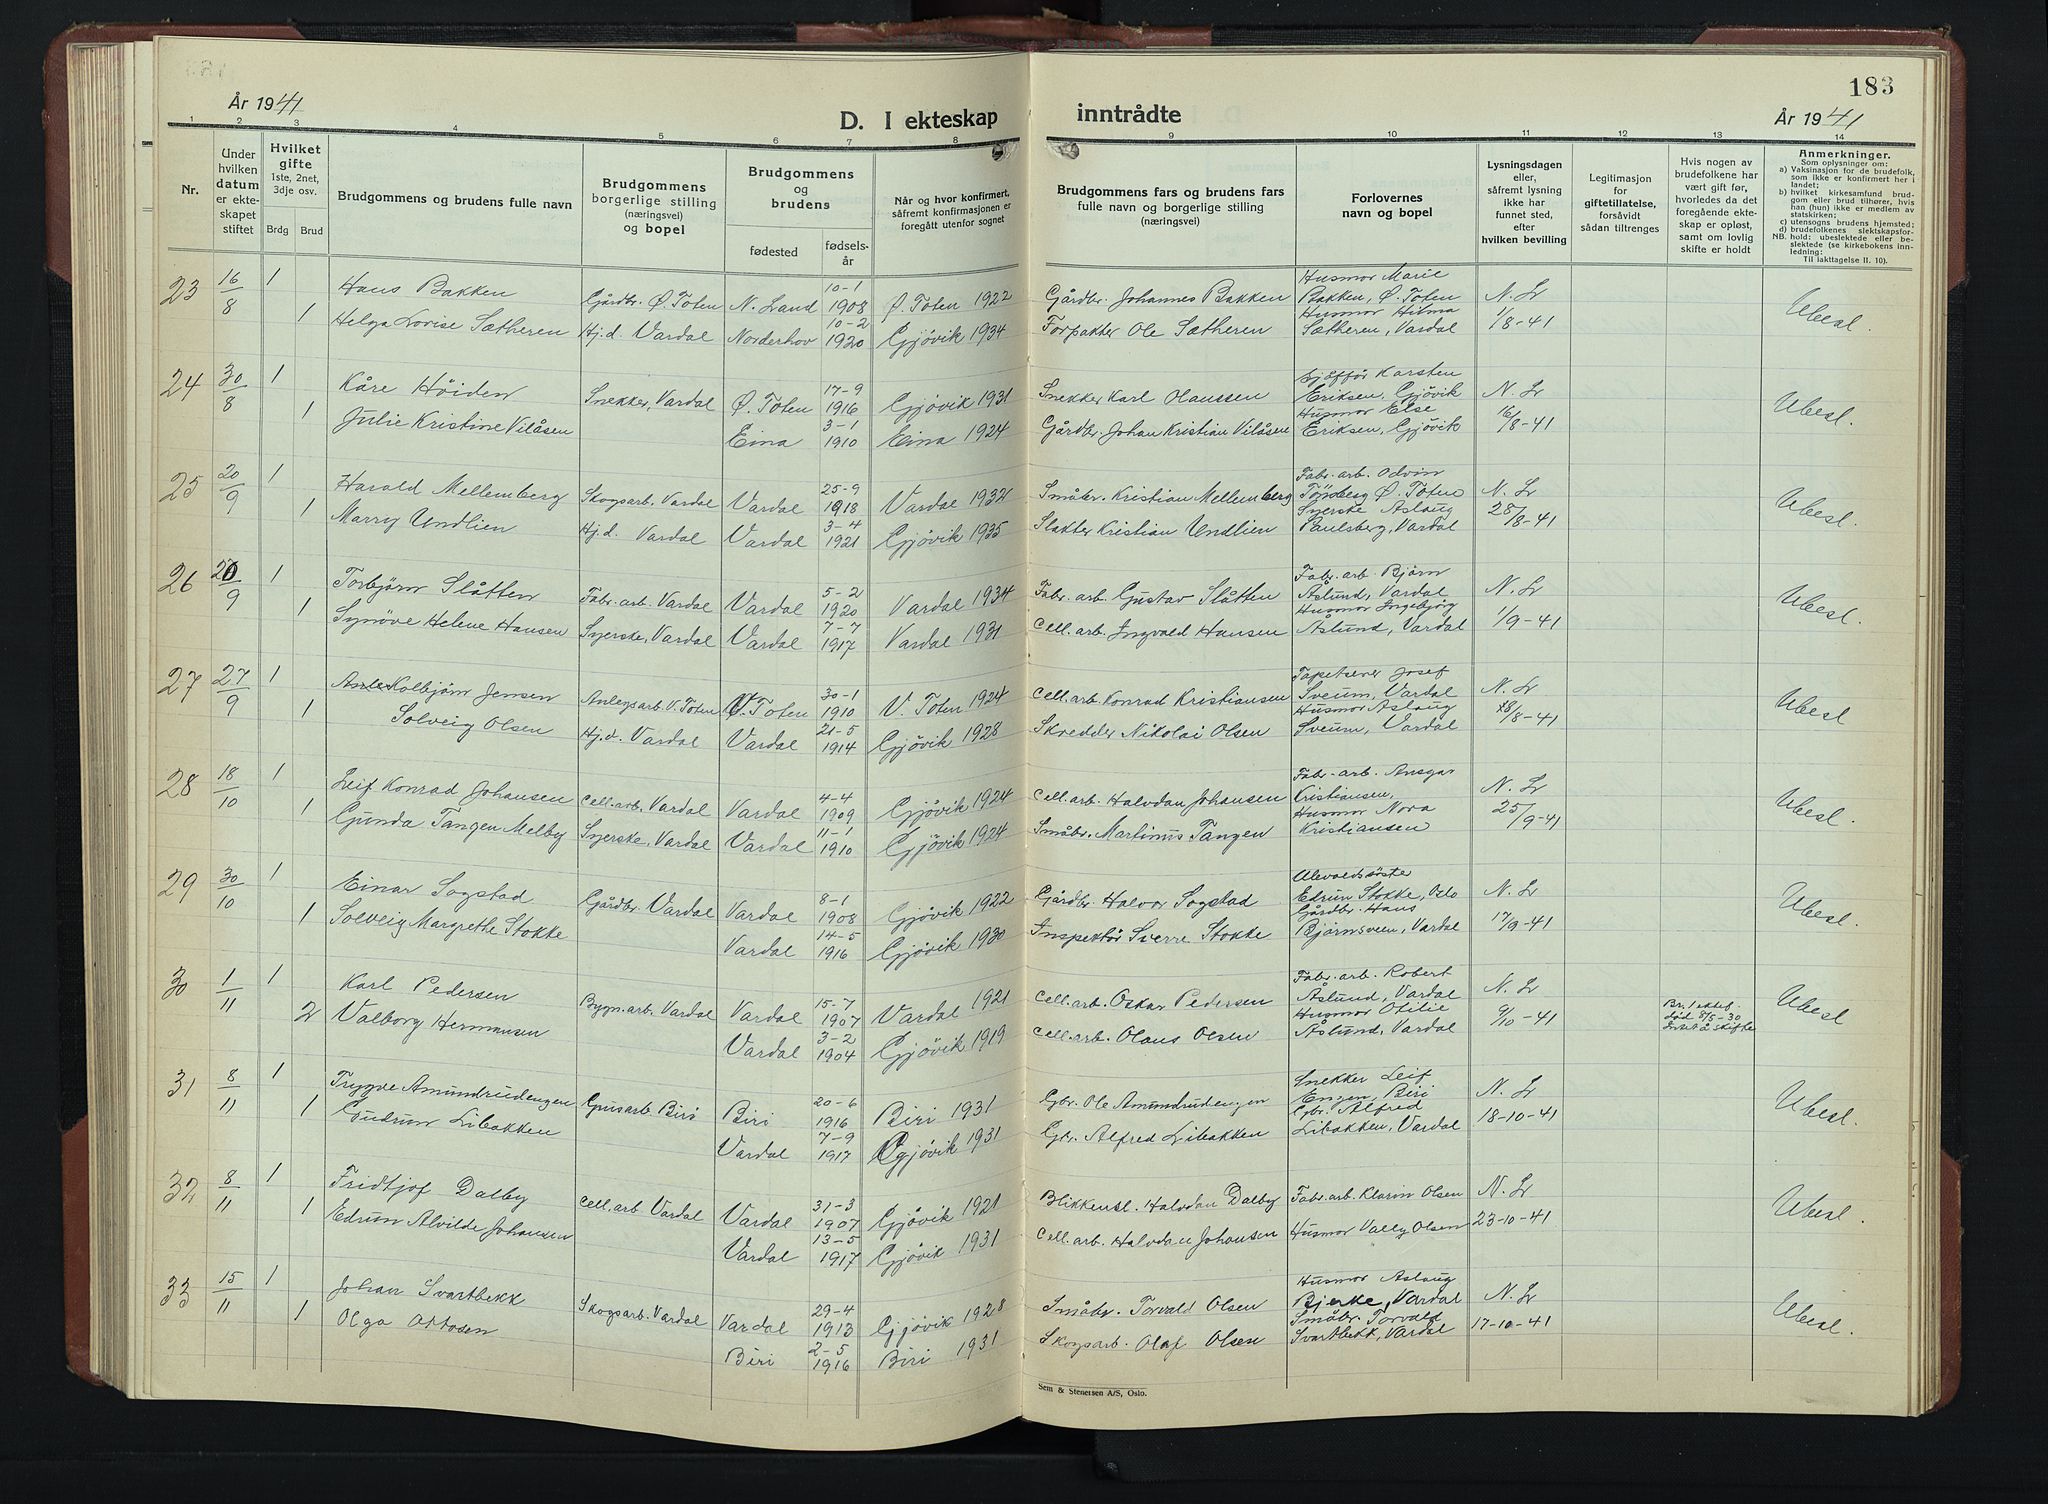 183
År 1941
D. I ekteskap
inntrådte
År 1941
1 2 3 4 5 6 7 8 9 10 11 12 13 14
Nr.
Under hvilken datum er ekteskapet stiftet
Hvilket gifte 1ste, 2net, 3dje osv.
Brdg Brud
Brudgommens og brudens fulle navn
Brudgommens borgerlige stilling (næringsvei) og bopel
Brudgommens og brudens
fødested fødsels-år
Når og hvor konfirmert, såfremt konfirmasjonen er foregått utenfor sognet
Brudgommens fars og brudens fars fulle navn og borgerlige stilling (næringsvei)
Forlovernes navn og bopel
Lysningsdagen eller, såfremt lysning ikke har funnet sted, efter hvilken bevilling
Legitimasjon for giftetillatelse, forsåvidt sådan tiltrenges
Hvis nogen av brudefolkene har vært gift før, hvorledes da det foregående ekteskap er opløst, samt om lovlig skifte er holdt
Anmerkninger.
Som oplysninger om:
a) Vaksinasjon for de brudefolk, som ikke er konfirmert her i landet;
b) hvilket kirkesamfund brudgom eller brud tilhører, hvis han (hun) ikke er medlem av statskirken;
c) utensogns brudens hjemsted;
d) brudefolkenes slektskapsforhold: ubeslektede eller beslektede (se kirkebokens innledning:
NB. Til iakttagelse II. 10).
23 16/8 1 Hans Bakken Gårdbr. Ø. Toten N. Land 10-1 1908 Ø. Toten 1922 Gårdbr. Johannes Bakken Husmor Marie Bakken, Ø. Toten N. Lr Ubesl.
1 Helga Lovise Sætheren Hj.d. Vardal Norderhov 10-2 1920 Gjøvik 1934 Forpakter Ole Sætheren Husmor Hilma Sætheren, Vardal 1/8-41
24 30/8 1 Kåre Höiden Snekker, Vardal Ø. Toten 17-9 1916 Gjøvik 1931 Snekker Karl Olaussen Sjåffør Karsten Eriksen, Gjövik N. Lr Ubesl.
1 Julie Kristine Vilåsen Eina 3-1 1910 Eina 1924 Gårdbr. Johan Kristian Vilåsen Husmor Else Eriksen, Gjøvik 16/8-41
25 20/9 1 Harald Mellemberg Skogsarb. Vardal Vardal 25-9 1918 Vardal 1932 Småbr. Kristian Mellemberg Fabr. arb. Odvin Tönsberg Ø. Toten N. Lr Ubesl.
1 Marry Undlien Hj.d. Vardal Vardal 3-4 1921 Gjøvik 1935 Slakter Kristian Undlien Syerske Aslaug Paulsberg, Vardal 28/8-41
26 20/9 1 Torbjørn Slåtten Fabr. arb. Vardal Vardal 5-2 1920 Vardal 1934 Fabr. arb. Gustav Slåtten Fabr. arb. Bjørn Åslund, Vardal N. Lr Ubesl.
1 Synøve Helene Hansen Syerske, Vardal Vardal 7-7 1917 Vardal 1931 Cell. arb. Ingvald Hansen Husmor Ingebjørg Åslund, Vardal 1/9-41
27 27/9 1 Kolbjörn Jensen Anlegsarb. V. Toten V. Toten 30-1 1910 V. Toten 1924 Cell. arb. Konrad Kristiansen Tapetserer Josef Sveum, Vardal N. Lr Ubesl
1 Solveig Olsen Hj.d. Vardal Vardal 21-5 1914 Gjøvik 1928 Skredder Nikolai Olsen Husmor Aslaug Sveum, Vardal 18/8-41
28 18/10 1 Leif Konrad Johansen Cell. arb. Vardal Vardal 4-4 1909 Gjøvik 1924 Cell. arb. Halvdan Johansen Fabr. arb. Ansgar Kristiansen, N. Lr Ubesl.
1 Gunda Tangen Melby Syerske, Vardal Vardal 11-1 1910 Gjøvik 1924 Småbr. Martinus Tangen Husmor Nora Kristiansen 25/9-41
29 30/10 1 Einar Sogstad Gårdbr. Vardal Vardal 8-1 1908 Gjøvik 1922 Gårdbr. Halvor Sogstad Edrun Stokke, Oslo N. Lr Ubesl.
1 Solveig Margrethe Stokke Vardal 14-5 1916 Gjøvik 1930 Inspektör Sverre Stokke Gårdbr. Hans Bjørnsveen, Vardal 17/9-41
30 1/11 1 Karl Pedersen Bygn. arb. Vardal Vardal 15-7 1907 Vardal 1921 Cell. arb. Oskar Pedersen Fabr. arb. Robert Åslund, Vardal N. Lr Br. 1 ektef. død 8/5-30 Intet å skifte Ubesl
2 Valborg Hermansen Vardal 3-2 1904 Gjøvik 1919 Cell. arb. Olaus Olsen Husmor Otilie Åslund, Vardal 9/10-41
31 8/11 1 Trygve Amundrudengen Grusarb. Biri Biri 20-6 1916 Biri 1931 Gbr. Ole Amundrudengen Snekker Leif Engen, Biri N. Lr Ubesl.
1 Gudrun Libakken Vardal 7-9 1917 Gjøvik 1931 Gbr. Alfred Libakken Gbr. Alfred Libakken, Vardal 18-10-41
32 8/11 1 Fridtjof Dalby Cell. arb Vardal Vardal 31-3 1907 Gjøvik 1921 Blikkensl. Halvdan Dalby Fabr. arb. Klarin Olsen N. Lr Ubesl.
1 Edrun Alvilde Johansen Vardal 13-5 1917 Gjøvik 1931 Cell. arb. Halvdan Johansen Husmor Vally Olsen 23-10-41
33 15/11 1 Johan Svartbekk Skogsarb. Vardal Vardal 29-4 1913 Gjøvik 1928 Småbr. Torvald Olsen Husmor Aslaug Bjerke, Vardal N. Lr Ubesl.
1 Olga Ottosen Biri 2-5 1916 Biri 1931 Skogsarb. Olaf Olsen Småbr. Torvald Svartbekk, Vardal 17-10-41
Sem & Stenersen A/S, Oslo.